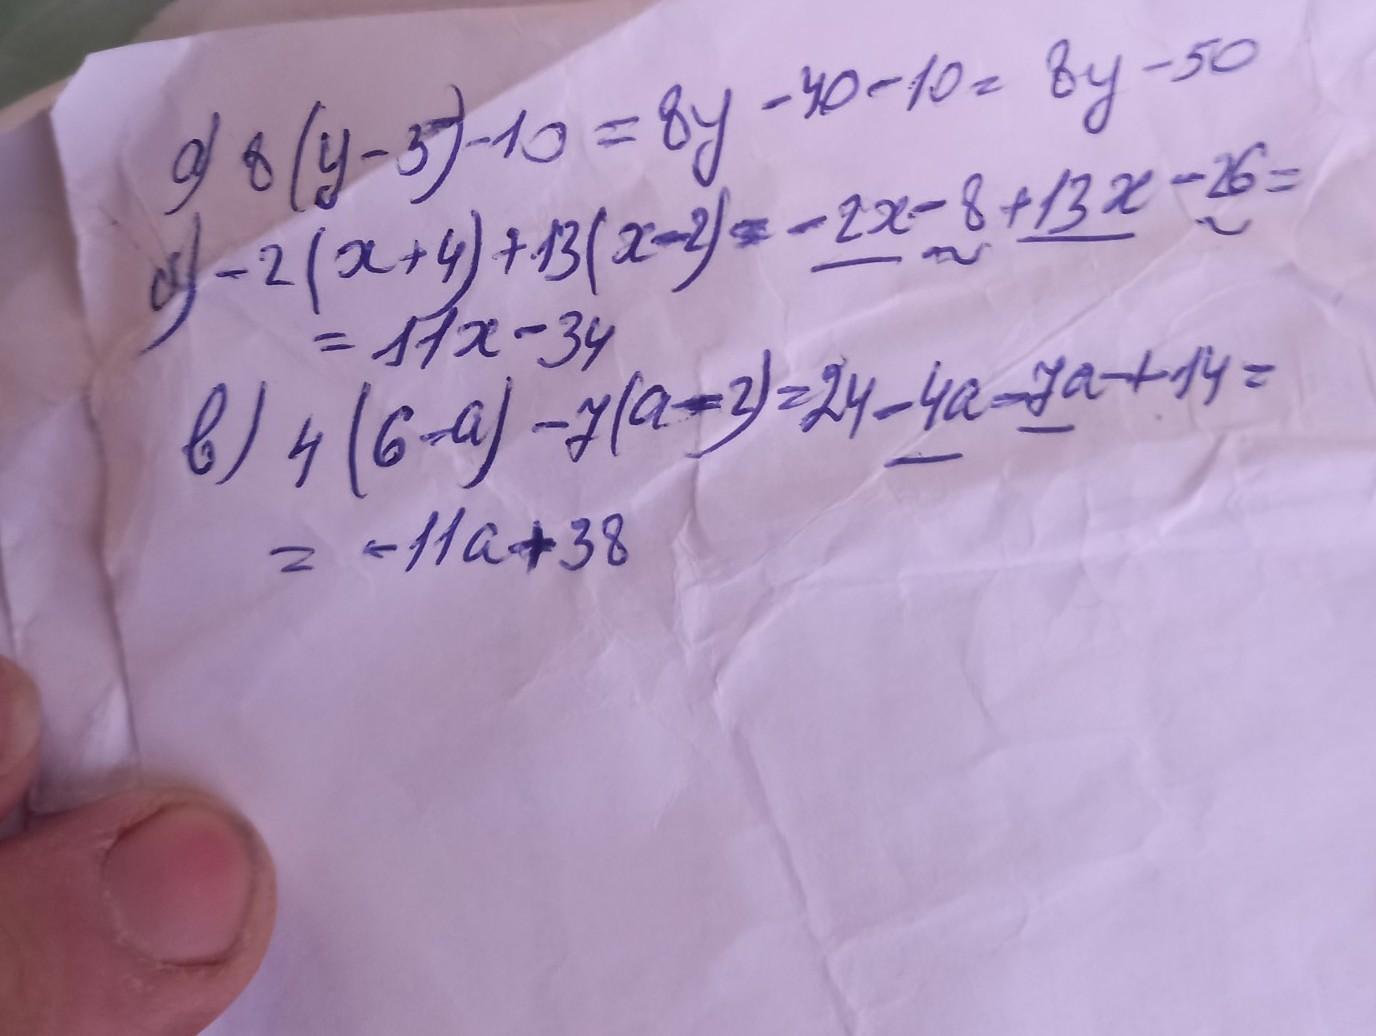 а) 8(y-5)-10=8y-40-10=8y-50
б) -2(x+4)+13(x-2)=-2x-8+13x-26=
=11x-34
в) 4(6-a)-7(a-2)=24-4a-7a+14=
= -11a+38